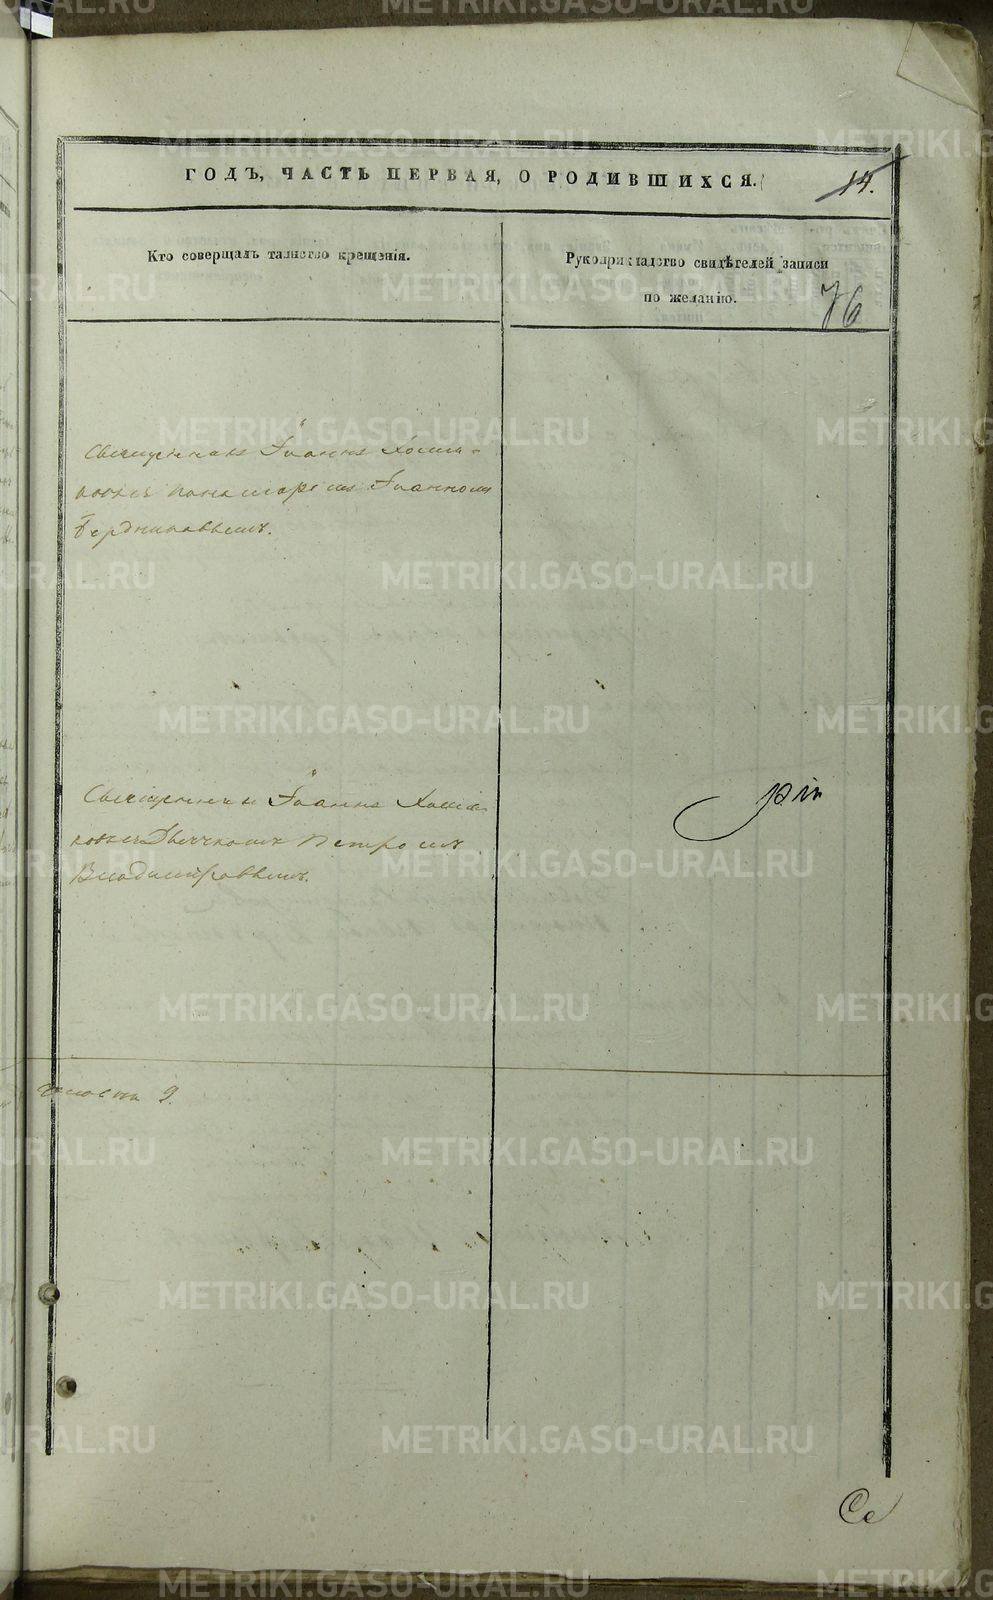 ГОДЪ, ЧАСТЬ ПЕРВАЯ, О РОДИВШИХСЯ.
14.
Кто совершалъ таинство крещенія.
Рукоприкладство свидѣтелей записи
по желанію.
76
Священникъ Іоаннъ Хомя-
ковъ съ пономаремъ Іоанномъ
Бердниковымъ.
Священникъ Іоаннъ Хомя-
ковъ съ Дьячкомъ Петромъ
Владимировымъ.
9.
Се
METRIKI.GASO-URAL.RU